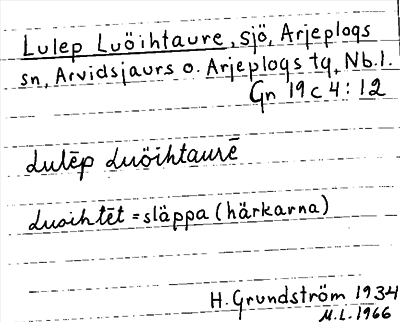 Lulep Luöihtaure, sjö, Arjeplogs
sn, Arvidsjaurs o. Arjeplogs tg, Nb.l.
Gn 19 c 4 : 12
Lulēp Luöihtaurē
Luoihtēt = släppa (härkarna)
H. Grundström 1934
M.L. 1966